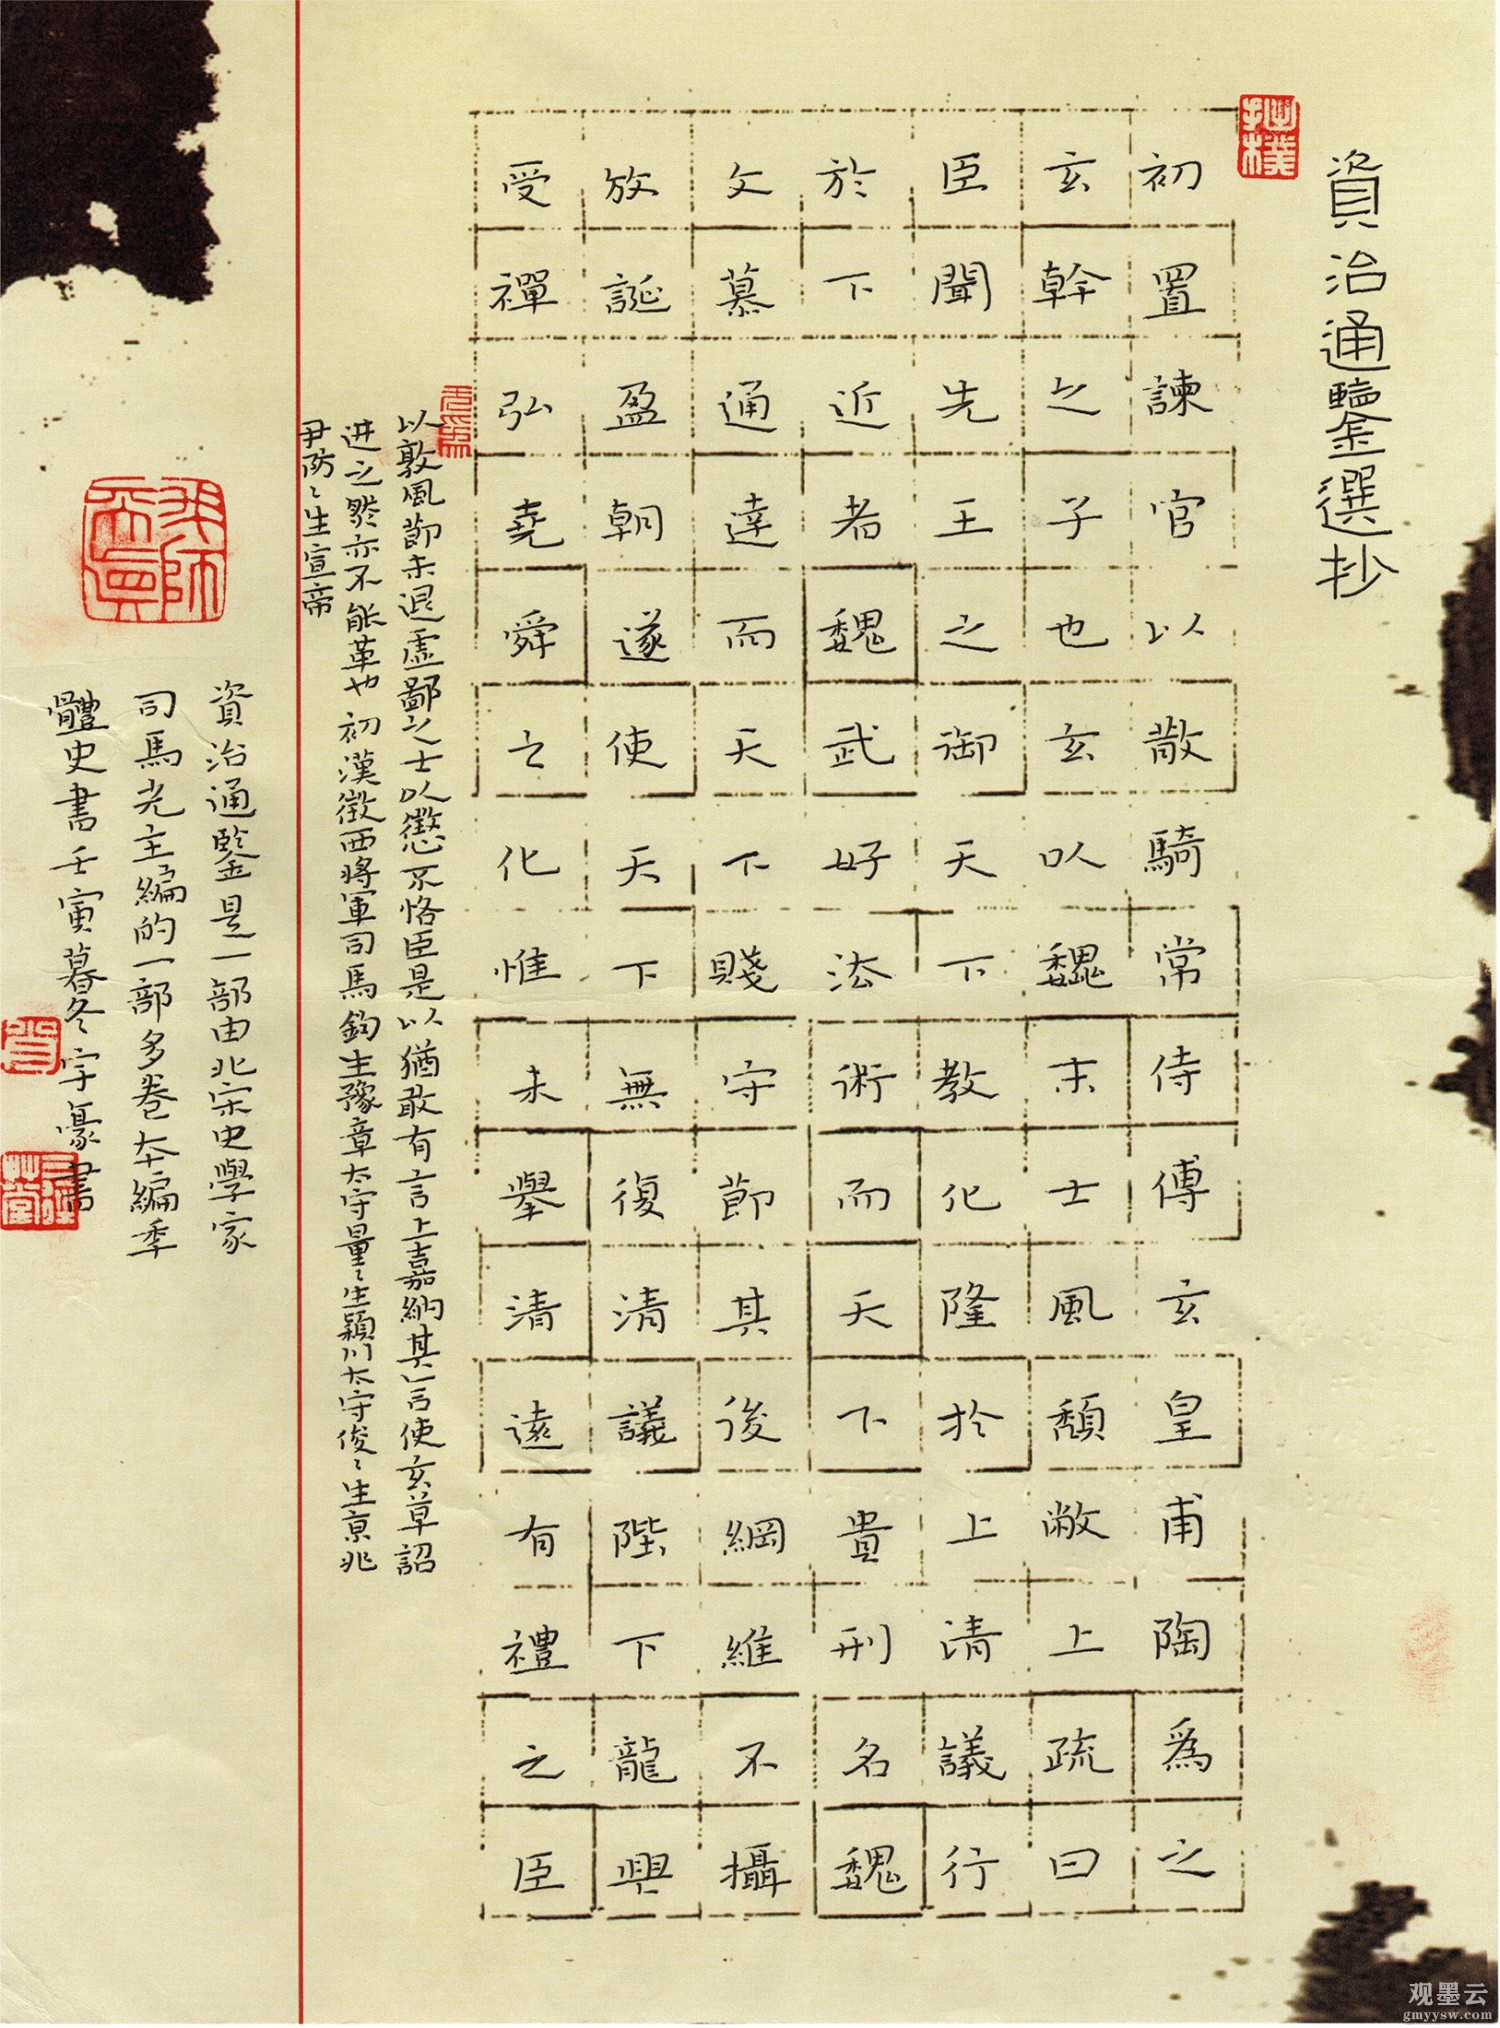 資治通鑒選抄
初置諫官以散騎常侍傅玄皇甫陶為之
玄幹之子也玄以魏末士風頹敝上疏曰
臣聞先王之御天下教化隆於上清議行
於下近者魏武好法術而天下貴刑名魏
文慕通達而天下賤守節其後綱維不攝
放誕盈朝遂使天下無復清議陛下龍興
受禪弘堯舜之化惟未舉清遠有禮之臣
以敦風節未退虛鄙之士以懲不恪臣是以猶敢有言上嘉納其言使玄草詔
进之然亦不能革也初漢徵西將軍司馬鈞生豫章太守量〻生潁川太守俊〻生京兆
尹防〻生宣帝
資治通鑒是一部由北宋史學家
司馬光主編的一部多卷本編年
體史書壬寅暮冬宇濠書
观墨云
gmyysw.com